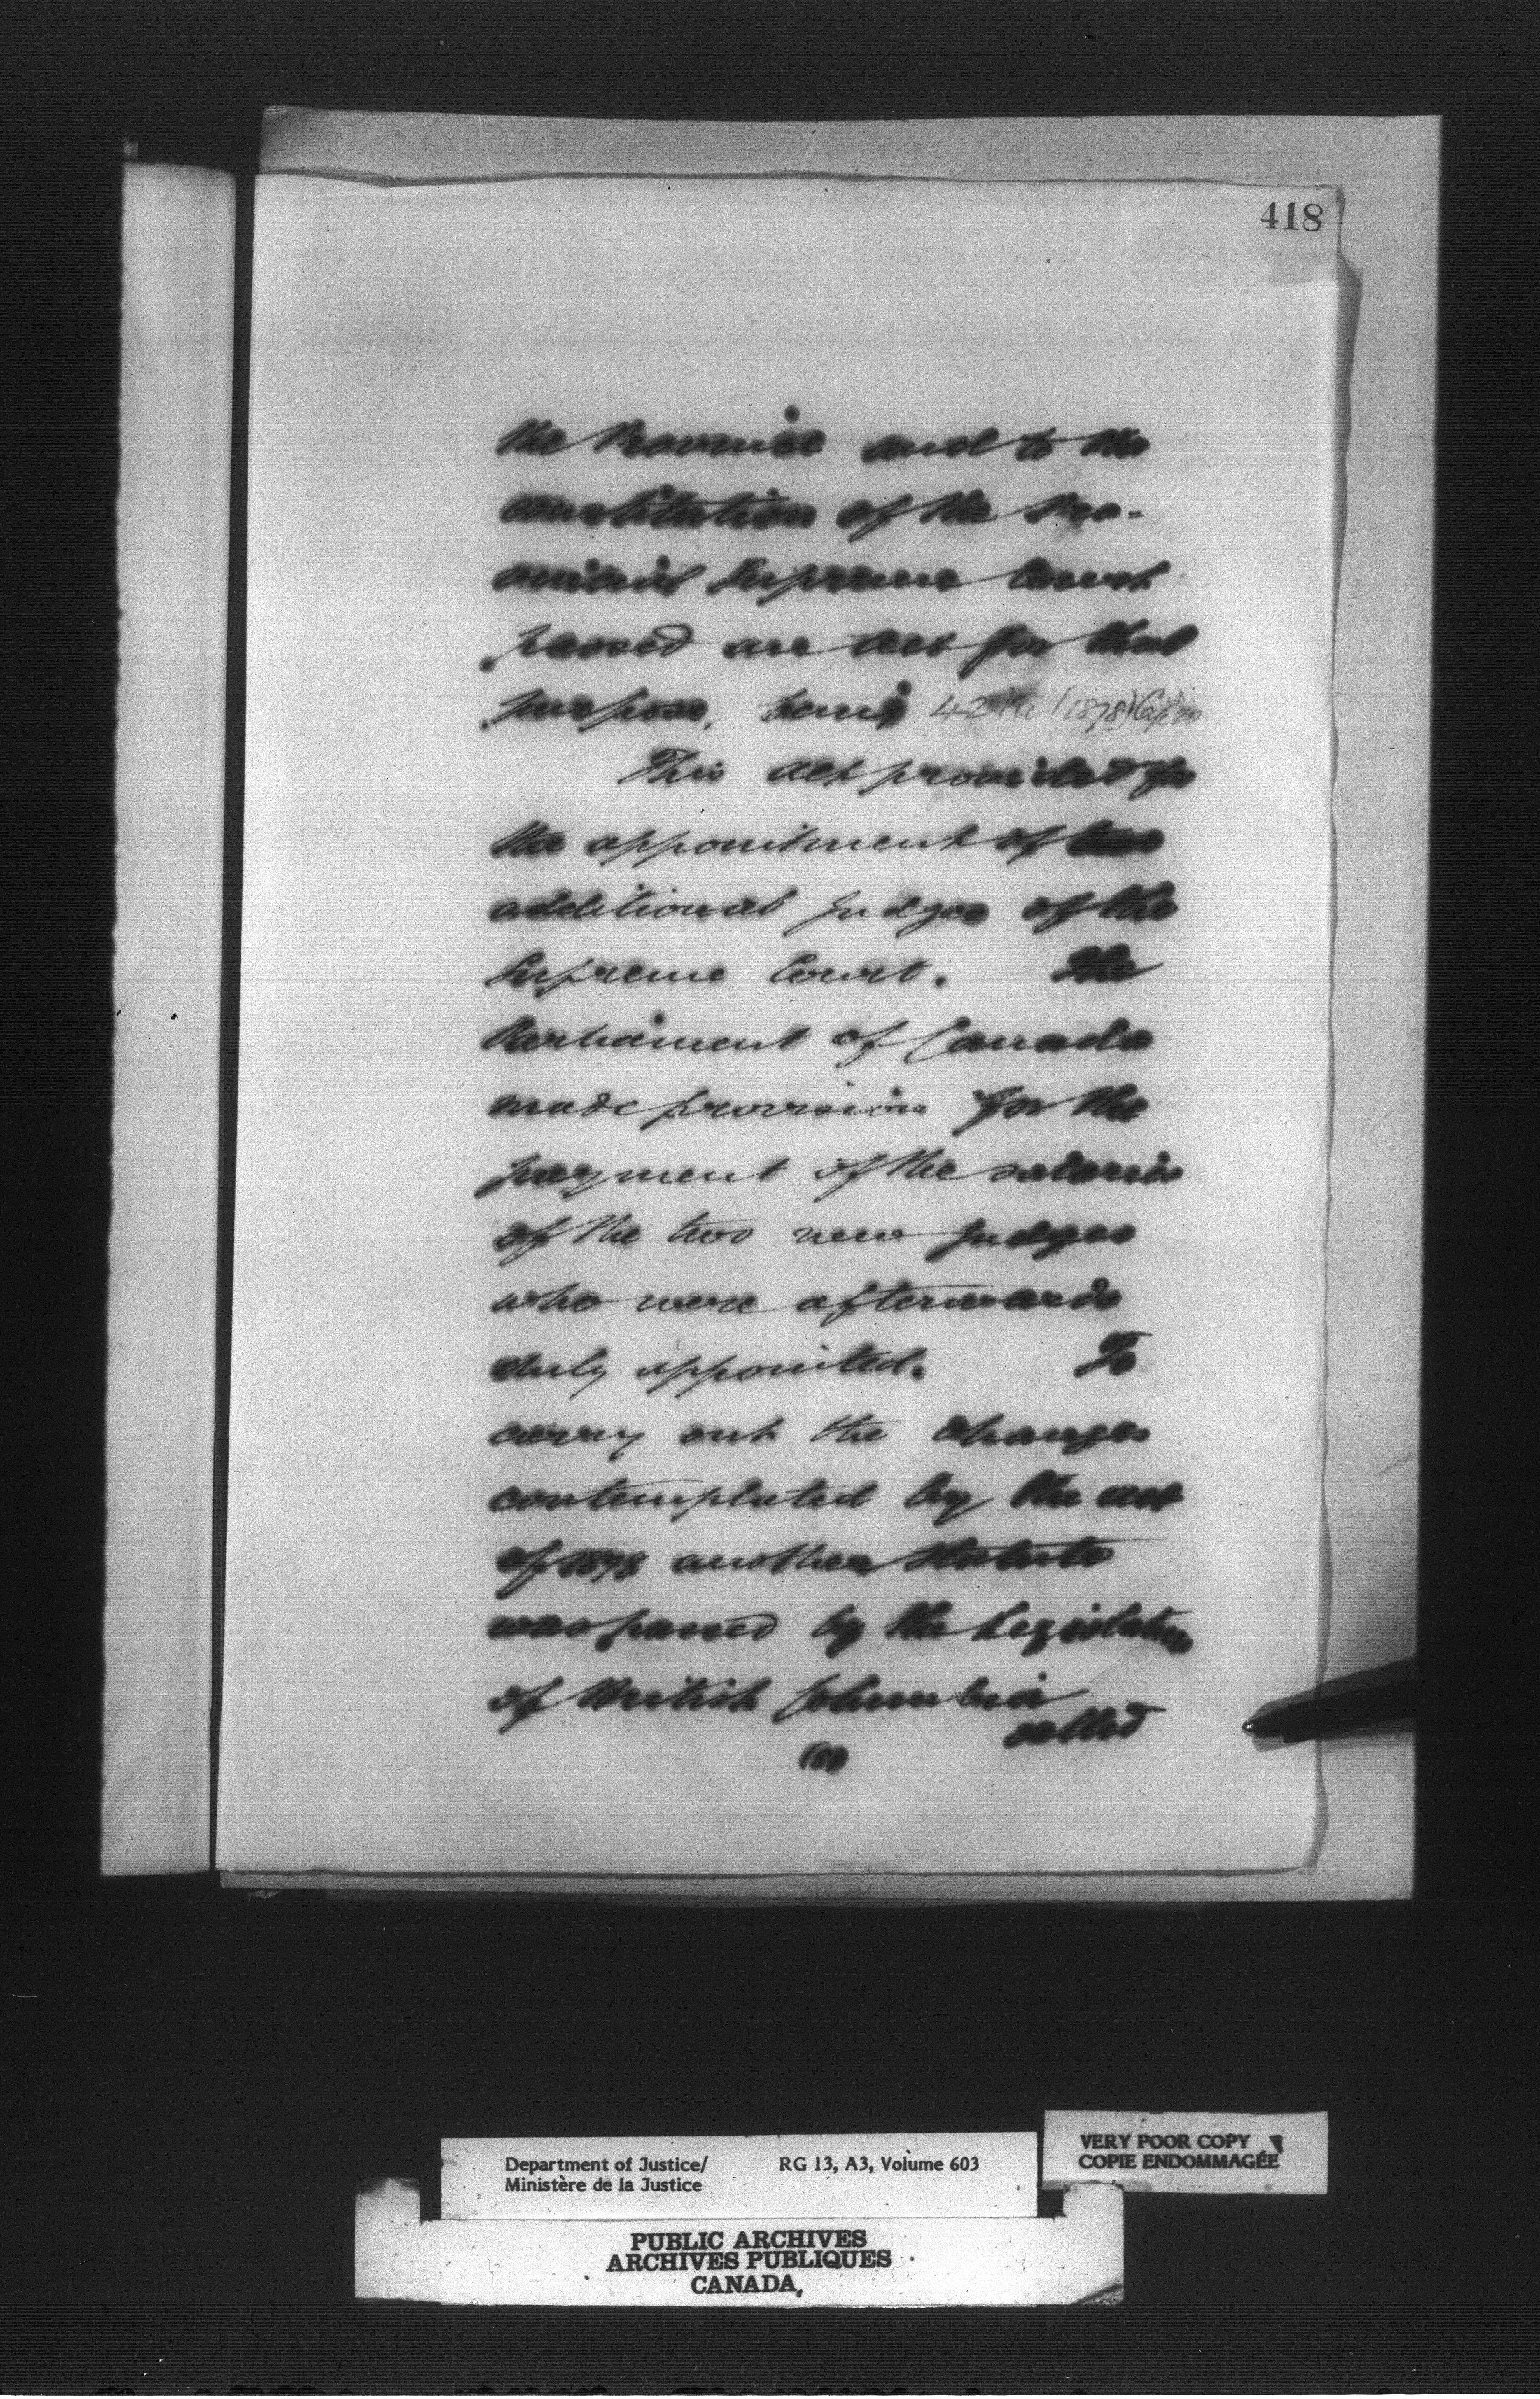 418
the Province and to the
constitution of the Pro-
vincial Supreme Court
passed an act for that
purpose, being 42 Vic (1878) Cap 20
This act provided for
the appointment of two
additional judges of the
Supreme Court. The
Parliament of Canada
made provision for the
payment of the salaries
of the two new judges
who were afterwards
duly appointed. To
carry out the changes
contemplated by the act
of 1878 another statute
was passed by the Legislature
of British Columbia
called
(8)
Department of Justice/ RG 13, A3, Volume 603
Ministère de la Justice
VERY POOR COPY
COPIE ENDOMMAGÉE
PUBLIC ARCHIVES
ARCHIVES PUBLIQUES
CANADA